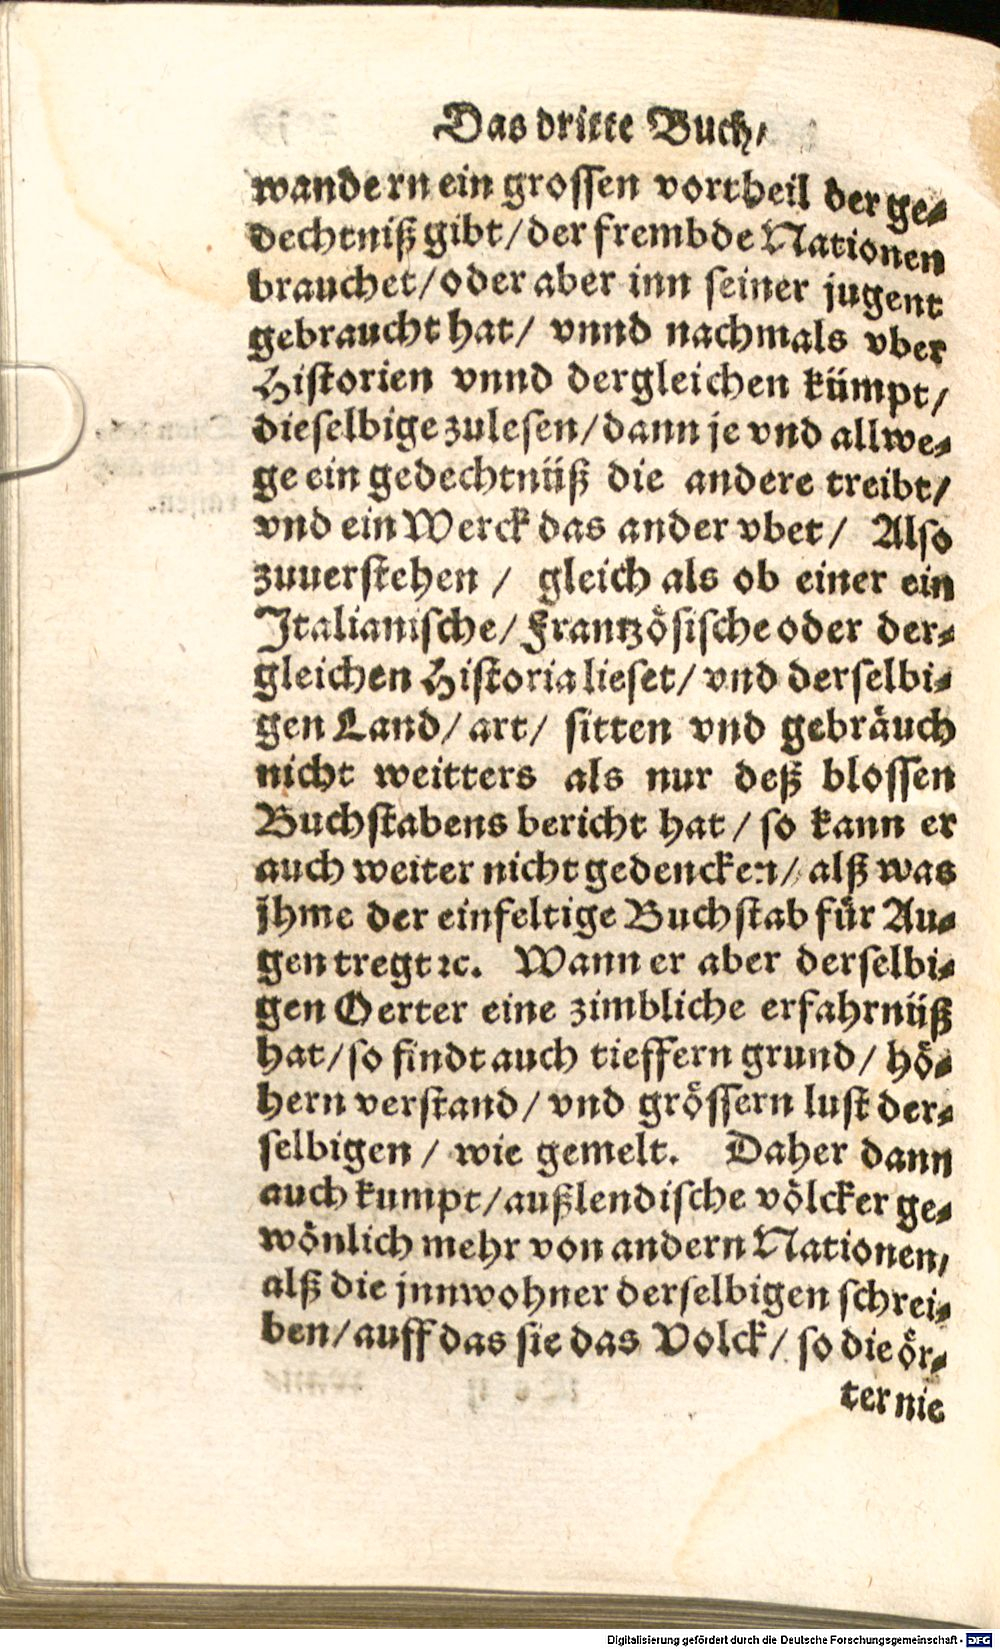 Das dritte Buch/
wandern ein grossen vortheil der ge-
dechtniß gibt/ der frembde Nationen
brauchet/ oder aber inn seiner jugent
gebraucht hat/ vnnd nachmals vber
Historien vnnd dergleichen kümpt/
dieselbige zulesen/ dann je vnd allwe-
ge ein gedechtnüß die andere treibt/
vnd ein Werck das ander vbet/ Also
zuuerstehen / gleich als ob einer ein
Italianische/ Frantzösische oder der-
gleichen Historia lieset/ vnd derselbi-
gen Land/ art/ sitten vnd gebräuch
nicht weitters als nur deß blossen
Buchstabens bericht hat / so kann er
auch weiter nicht gedencken/ alß was
jhme der einfeltige Buchstab für Au-
gen tregt ꝛc. Wann er aber derselbi-
gen Oerter eine zimbliche erfahrnüß
hat/ so findt auch tieffern grund/ hö-
hern verstand/ vnd grössern lust der-
selbigen / wie gemelt. Daher dann
auch kumpt/ außlendische völcker ge-
wönlich mehr von andern Nationen/
alß die jnnwohner derselbigen schrei-
ben/ auff das sie das Volck/ so die ör-
ter nie
Digitalisierung gefördert durch die Deutsche Forschungsgemeinschaft - DFG